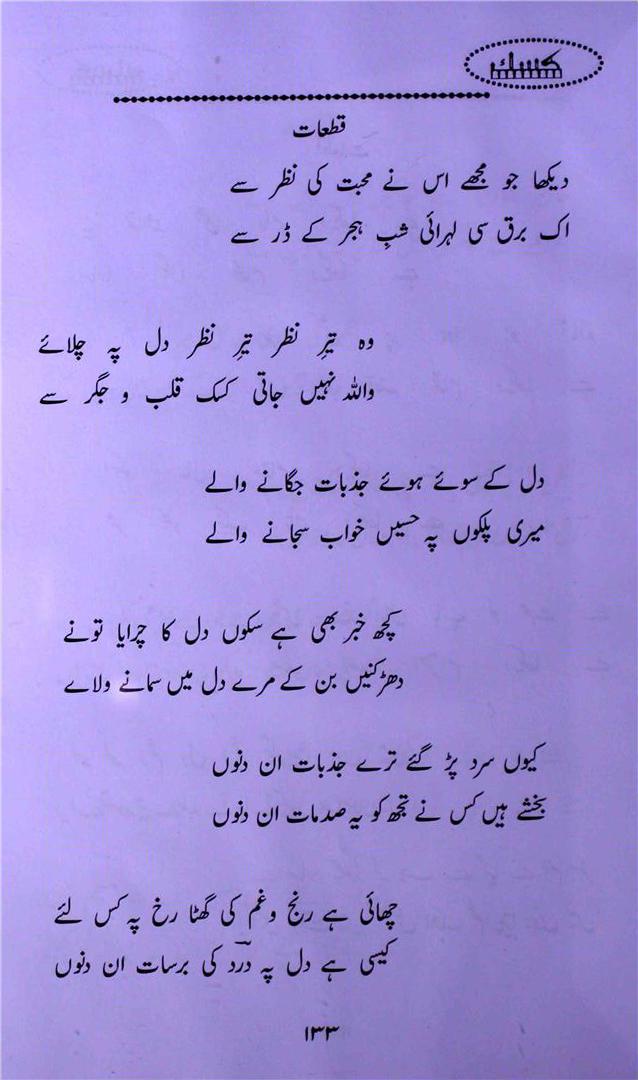 کسک
قطعات
دیکھا جو مجھے اس نے محبت کی نظر سے
اک برق سی لہرائی شبِ ہجر کے ڈر سے
وہ تیرِ نظر تیرِ نظر دل پہ چلائے
واللہ نہیں جاتی کسک قلب و جگر سے
دل کے سوئے ہوئے جذبات جگانے والے
میری پلکوں پہ حسیں خواب سجانے والے
کچھ خبر بھی ہے سکوں دل کا چرایا تونے
دھڑکنیں بن کے مرے دل میں سمانے ولاے
کیوں سرد پڑ گئے ترے جذبات ان دنوں
بخشے ہیں کس نے تجھ کو یہ صدمات ان دنوں
چھائی ہے رنج وغم کی گھٹا رخ پہ کس لئے
کیسی ہے دل پہ درؔد کی برسات ان دنوں
۱۳۳